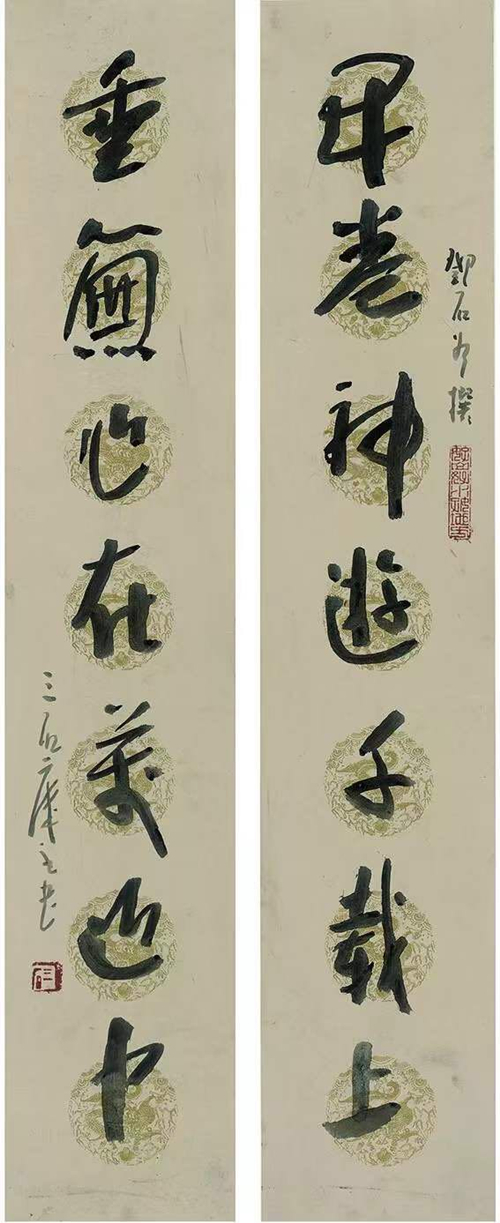 開卷神遊千載上
鄧石如撰
垂簾心在萬山中
三石